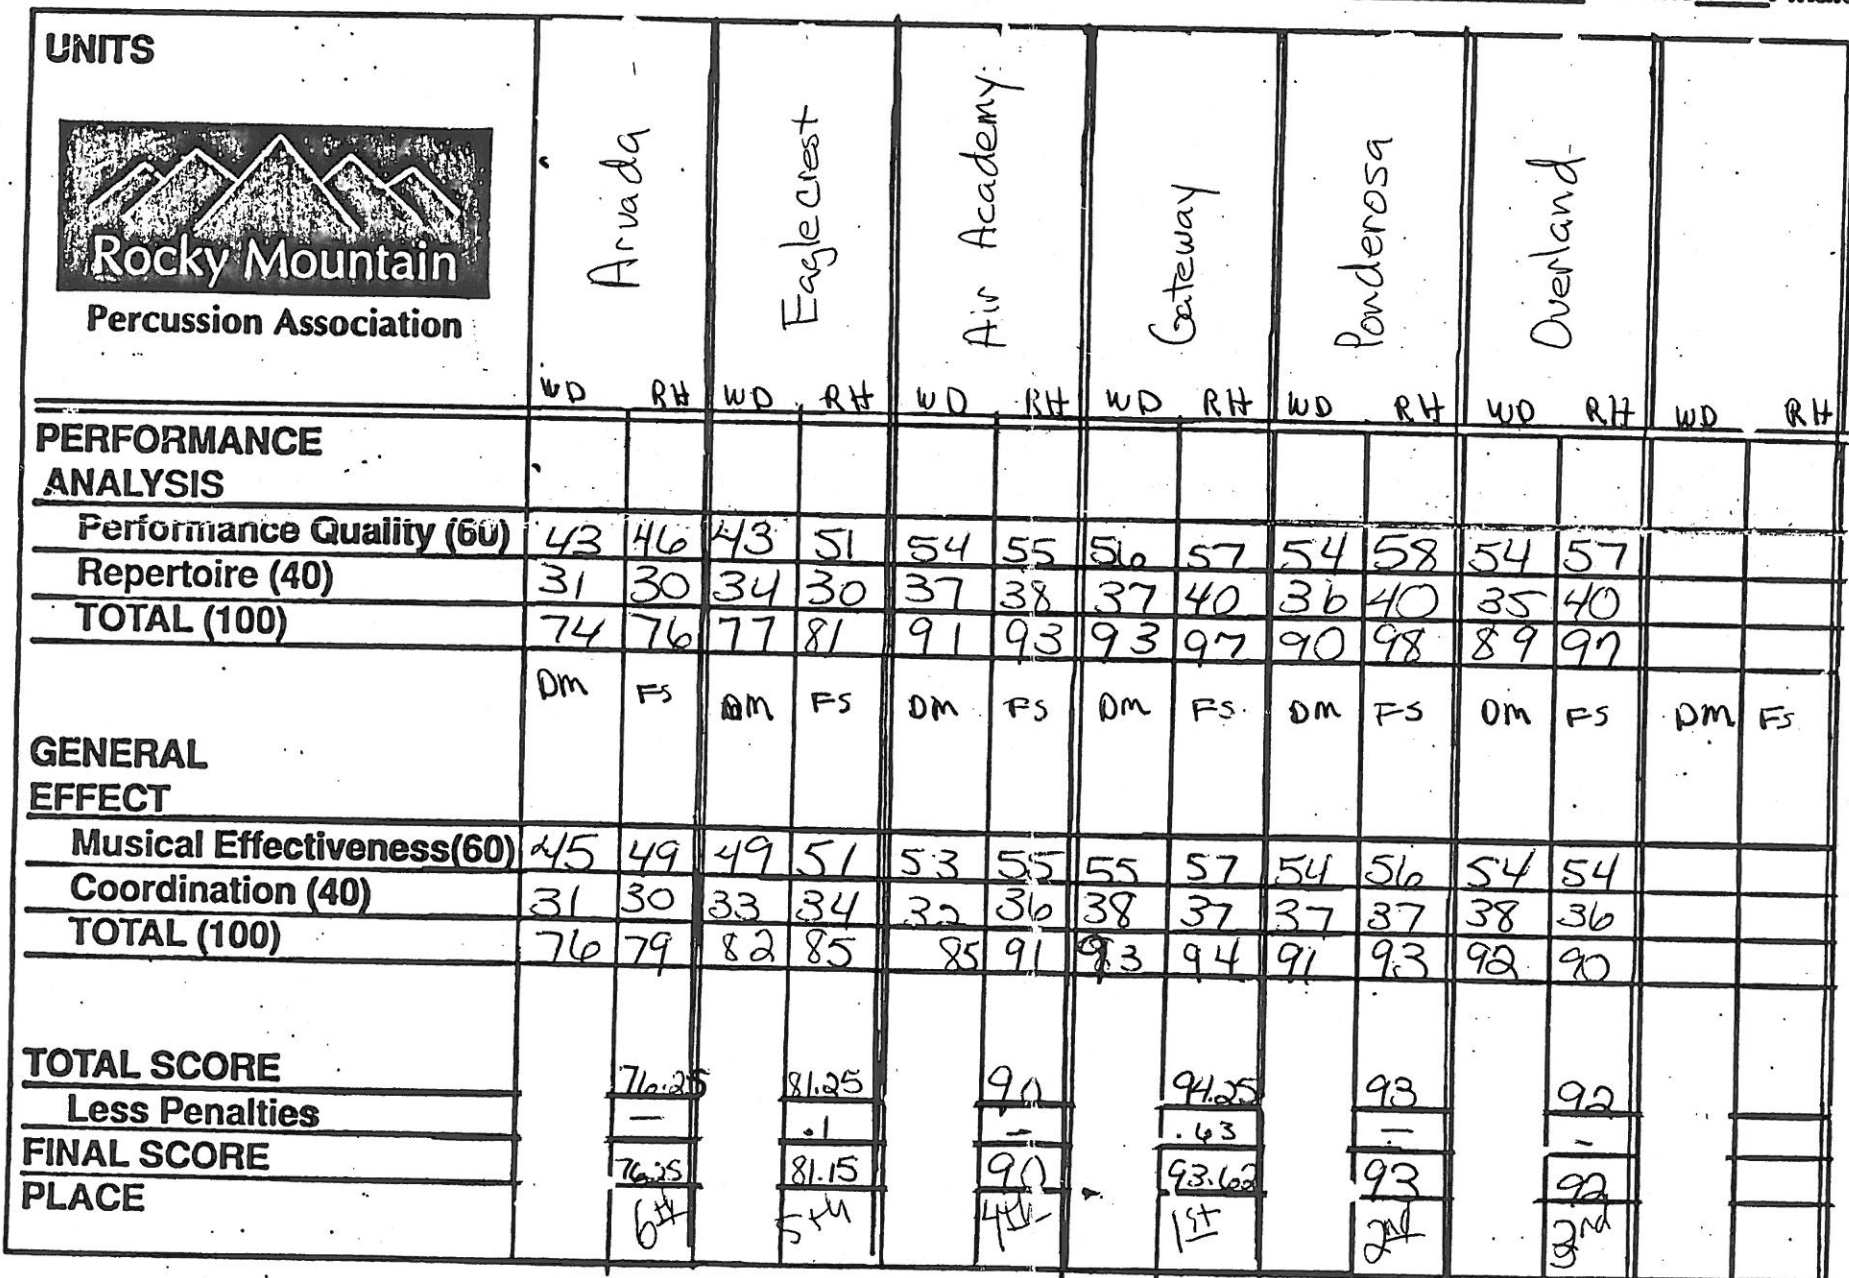 UNITS
Rocky Mountain
Percussion Association
Arvada
Eaglecrest
Air Academy
Gateway
Ponderosa
Overland
WD RH WD RH WD RH WD RH WD RH WD RH WD RH
PERFORMANCE
ANALYSIS
Performance Quality (60) 43 46 43 51 54 55 56 57 54 58 54 57
Repertoire (40) 31 30 34 30 37 38 37 40 36 40 35 40
TOTAL (100) 74 76 77 81 91 93 93 97 90 98 89 97
DM FS DM FS DM FS DM FS DM FS DM FS DM FS
GENERAL
EFFECT
Musical Effectiveness(60) 45 49 49 51 53 55 55 57 54 56 54 54
Coordination (40) 31 30 33 34 32 36 38 37 37 37 38 36
TOTAL (100) 76 79 82 85 85 91 93 94 91 93 92 90
TOTAL SCORE 76.25 81.25 90 94.25 93 92
Less Penalties — .1 – .63 – –
FINAL SCORE 76.25 81.15 90 93.62 93 92
PLACE 6th 5th 4th 1st 2nd 3rd